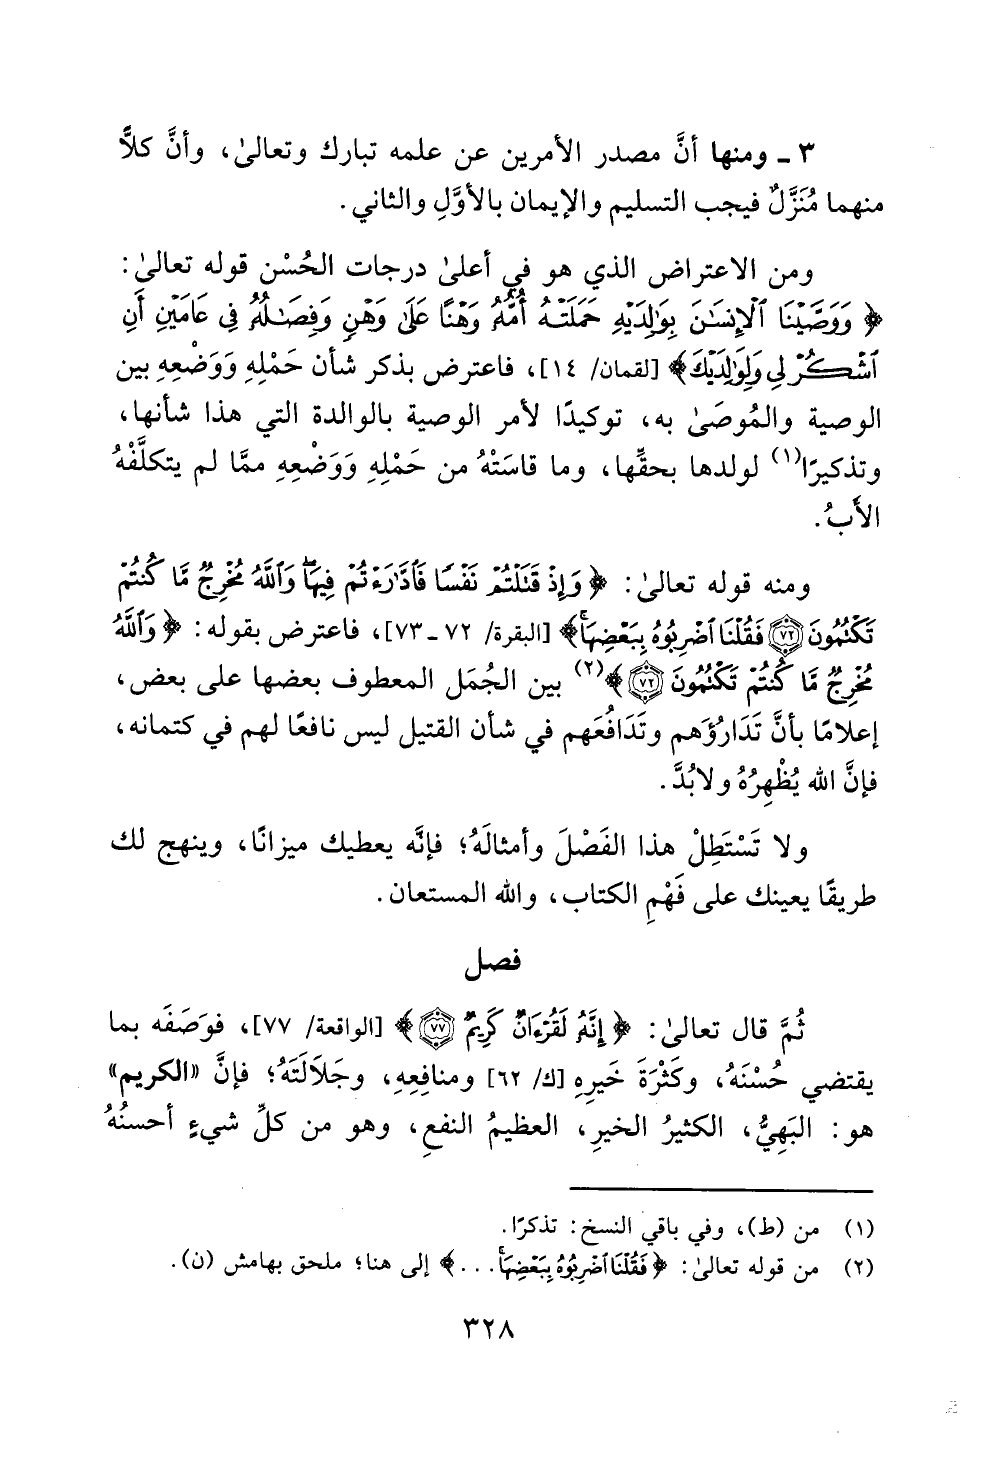 ٣ ـ ومنها أنَّ مصدر الأمرين عن علمه تبارك وتعالىٰ، وأنَّ كلاًّ
منهما مُنَزَّلٌ فيجب التسليم والإيمان بالأوَّلِ والثاني.
ومن الاعتراض الذي هو في أعلىٰ درجات الحُسْن قوله تعالىٰ:
﴿ وَوَصَّيْنَا ٱلْإِنسَٰنَ بِوَٰلِدَيْهِ حَمَلَتْهُ أُمُّهُۥ وَهْنًا عَلَىٰ وَهْنٍ وَفِصَٰلُهُۥ فِى عَامَيْنِ أَنِ
ٱشْكُرْ لِى وَلِوَٰلِدَيْكَ﴾ [لقمان/ ١٤]، فاعترض بذكر شأن حَمْلِهِ وَوَضْعِهِ بين
الوصية والمُوصَىٰ به، توكيدًا لأمر الوصية بالوالدة التي هذا شأنها،
وتذكيرًا(١) لولدها بحقِّها، وما قاسَتْهُ من حَمْلِهِ وَوَضْعِهِ ممَّا لم يتكلَّفْهُ
الأَبُ.
ومنه قوله تعالىٰ: ﴿ وَإِذْ قَتَلْتُمْ نَفْسًا فَٱدَّٰرَْٰٔتُمْ فِيهَا ۖ وَٱللَّهُ مُخْرِجٌ مَّا كُنتُمْ
تَكْتُمُونَ ٧٢ فَقُلْنَا ٱضْرِبُوهُ بِبَعْضِهَا ۚ﴾ [البقرة/ ٧٢ ـ ٧٣]، فاعترض بقوله: ﴿ وَٱللَّهُ
مُخْرِجٌ مَّا كُنتُمْ تَكْتُمُونَ ٧٢ ﴾(٢) بين الجُمَل المعطوف بعضها على بعض،
إعلامًا بأنَّ تَدَارُؤَهم وتَدَافُعَهم في شأن القتيل ليس نافعًا لهم في كتمانه،
فإنَّ الله يُظْهِرُهُ ولابُدَّ.
ولا تَسْتَطِلْ هذا الفَصْلَ وأمثالَهُ؛ فإنَّه يعطيك ميزانًا، وينهج لك
طريقًا يعينك على فَهْمِ الكتاب، والله المستعان.
فصل
ثُمَّ قال تعالىٰ: ﴿ إِنَّهُۥ لَقُرْءَانٌ كَرِيمٌ ٧٧ ﴾ [الواقعة/ ٧٧]، فوَصَفَه بما
يقتضي حُسْنَهُ، وكَثْرَةَ خَيرِهِ [ك/ ٦٢] ومنافِعِهِ، وجَلَالَتَهُ؛ فإنَّ «الكريم»
هو: البَهِيُّ، الكثيرُ الخيرِ، العظيمُ النفعِ، وهو من كلِّ شيءٍ أحسنُهُ
(١) من (ط)، وفي باقي النسخ: تذكرًا.
(٢) من قوله تعالىٰ: ﴿ فَقُلْنَا ٱضْرِبُوهُ بِبَعْضِهَا ۚ. . .﴾ إلى هنا؛ ملحق بهامش (ن).
٣٢٨